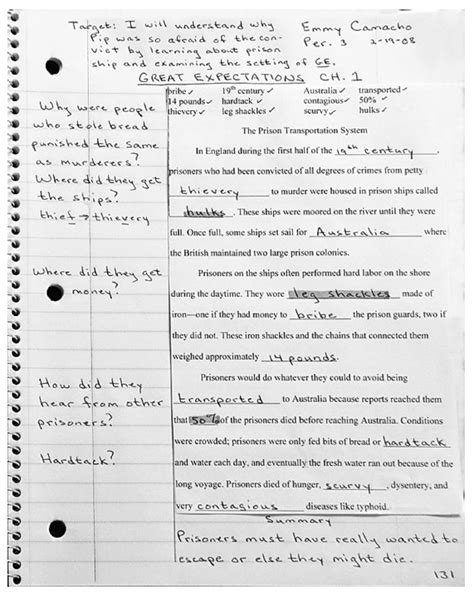 Target: I will understand why Emmy Camacho
Pip was so afraid of the con- Per. 3 2-19-08
vict by learning about prison
ship and examining the setting of GE.
GREAT EXPECTATIONS CH. 1
bribe ✓ 19th century ✓ Australia ✓ transported ✓
14 pounds ✓ hardtack ✓ contagious ✓ 50% ✓
thievery ✓ leg shackles ✓ scurvy ✓ hulks ✓
The Prison Transportation System
In England during the first half of the 19th century,
prisoners who had been convicted of all degrees of crimes from petty
thievery to murder were housed in prison ships called
hulks. These ships were moored on the river until they were
full. Once full, some ships set sail for Australia where
the British maintained two large prison colonies.
Prisoners on the ships often performed hard labor on the shore
during the daytime. They wore leg shackles made of
iron—one if they had money to bribe the prison guards, two if
they did not. These iron shackles and the chains that connected them
weighed approximately 14 pounds.
Prisoners would do whatever they could to avoid being
transported to Australia because reports reached them
that 50% of the prisoners died before reaching Australia. Conditions
were crowded; prisoners were only fed bits of bread or hardtack
and water each day, and eventually the fresh water ran out because of the
long voyage. Prisoners died of hunger, scurvy, dysentery, and
very contagious diseases like typhoid.
Why were people
who stole bread
punished the same
as murderers?
Where did they get
the ships?
thief → thievery
Where did they get
money?
How did they
hear from other
prisoners?
Hardtack?
Summary
Prisoners must have really wanted to
escape or else they might die.
131